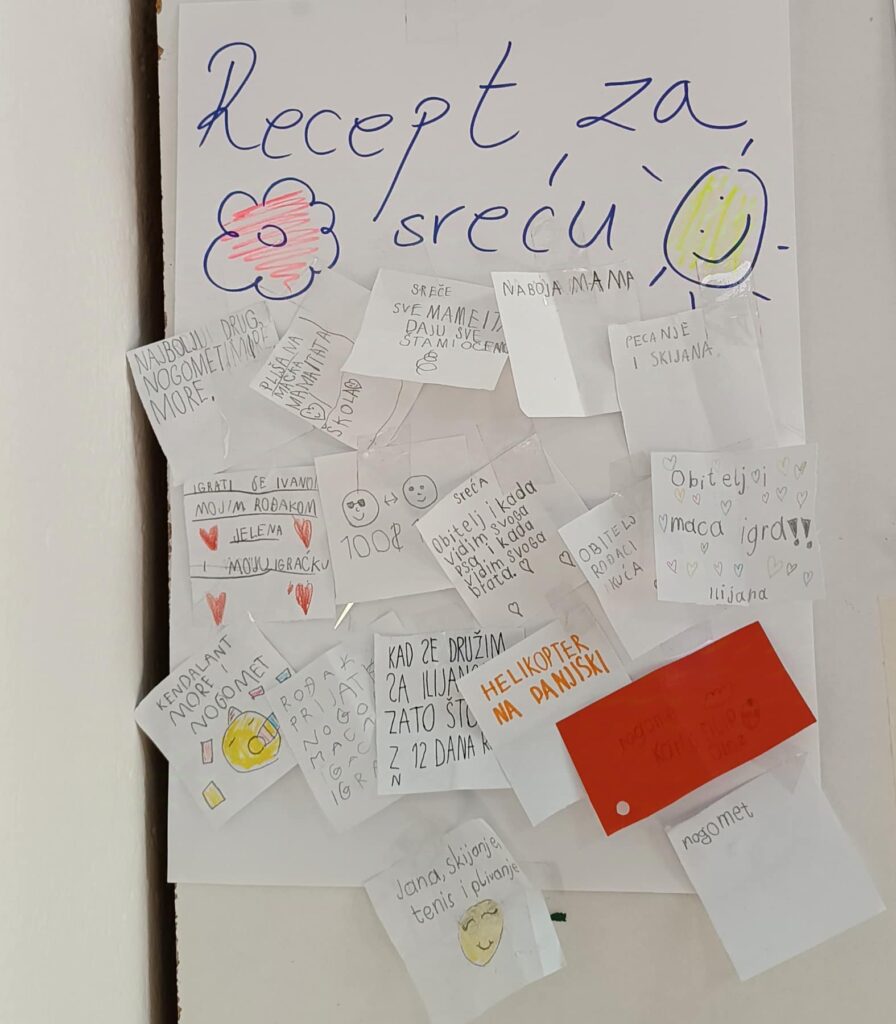 Recept za
sreću
NAJBOLJI DRUG,
NOGOMET,
MORE.
PLIŠANA
MAČKA
MAMA TATA
ŠKOLA
SREČE
SVE MAME I
DAJU SVE
ŠTA MI OČEMO
NABOJA MAMA
PECANJE
I SKIJANA.
IGRATI SE IVANOM
MOJIM ROĐAKOM
JELENA
I MOJU IGRAČKU
100
SREĆA
Obitelj i kada
vidim svoga
psa i kada
vidim svoga
brata.
OBITELJ
ROĐACI
KUĆA
Obitelj i
maca igra!!
Ilijana
KENDALANT
MORE I
NOGOMET
ROĐAK
PRIJAT
NOGO
MACA
IGRA
KAD SE DRUŽIM
SA ILIJANO
ZATO ŠTO
Z 12 DANA
N
HELIKOPTER
NA DANJISKI
Jana, skijanje,
tenis i plivanje
nogomet